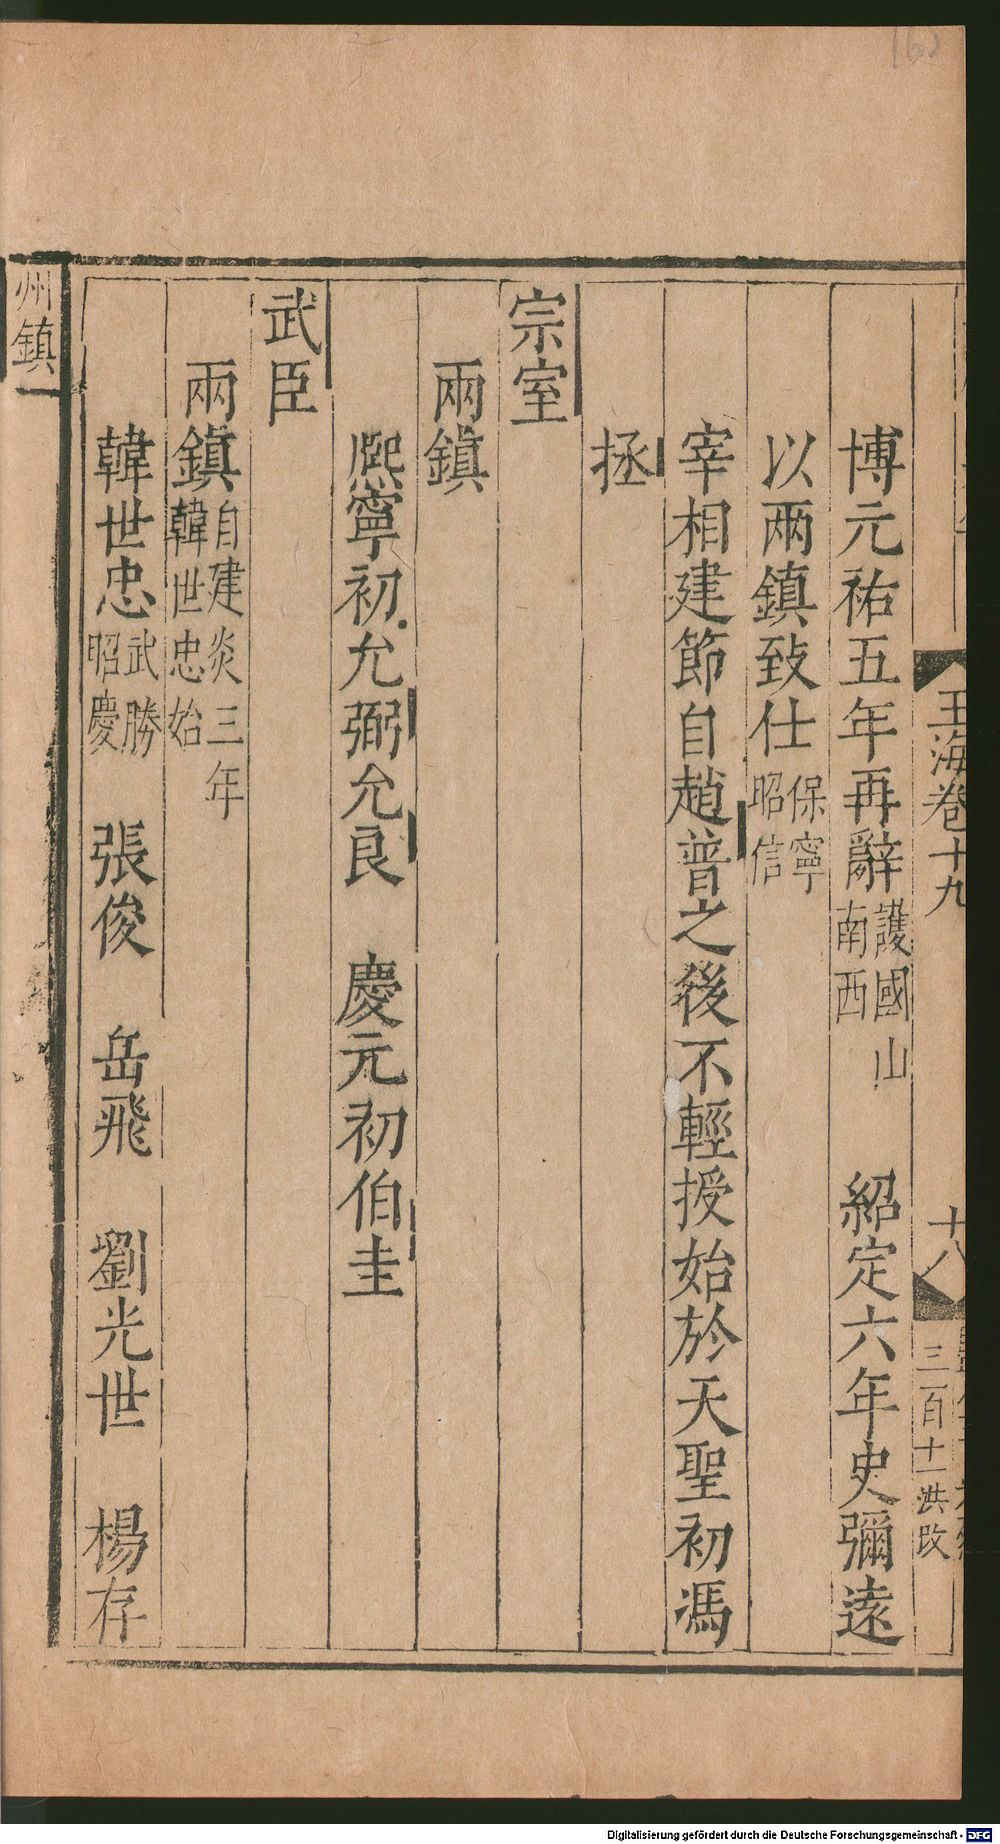 玉海卷十九
十八
三百十一洪改
博元祐五年再辭護國山南西 紹定六年史彌遠
以兩鎮致仕保寧昭信
宰相建節自趙普之後不輕授始於天聖初馮
拯
宗室
兩鎮
熙寧初允弼允良 慶元初伯圭
武臣
兩鎮自建炎三年韓世忠始
韓世忠武勝昭慶 張俊 岳飛 劉光世 楊存
州鎮
Digitalisierung gefördert durch die Deutsche Forschungsgemeinschaft - DFG